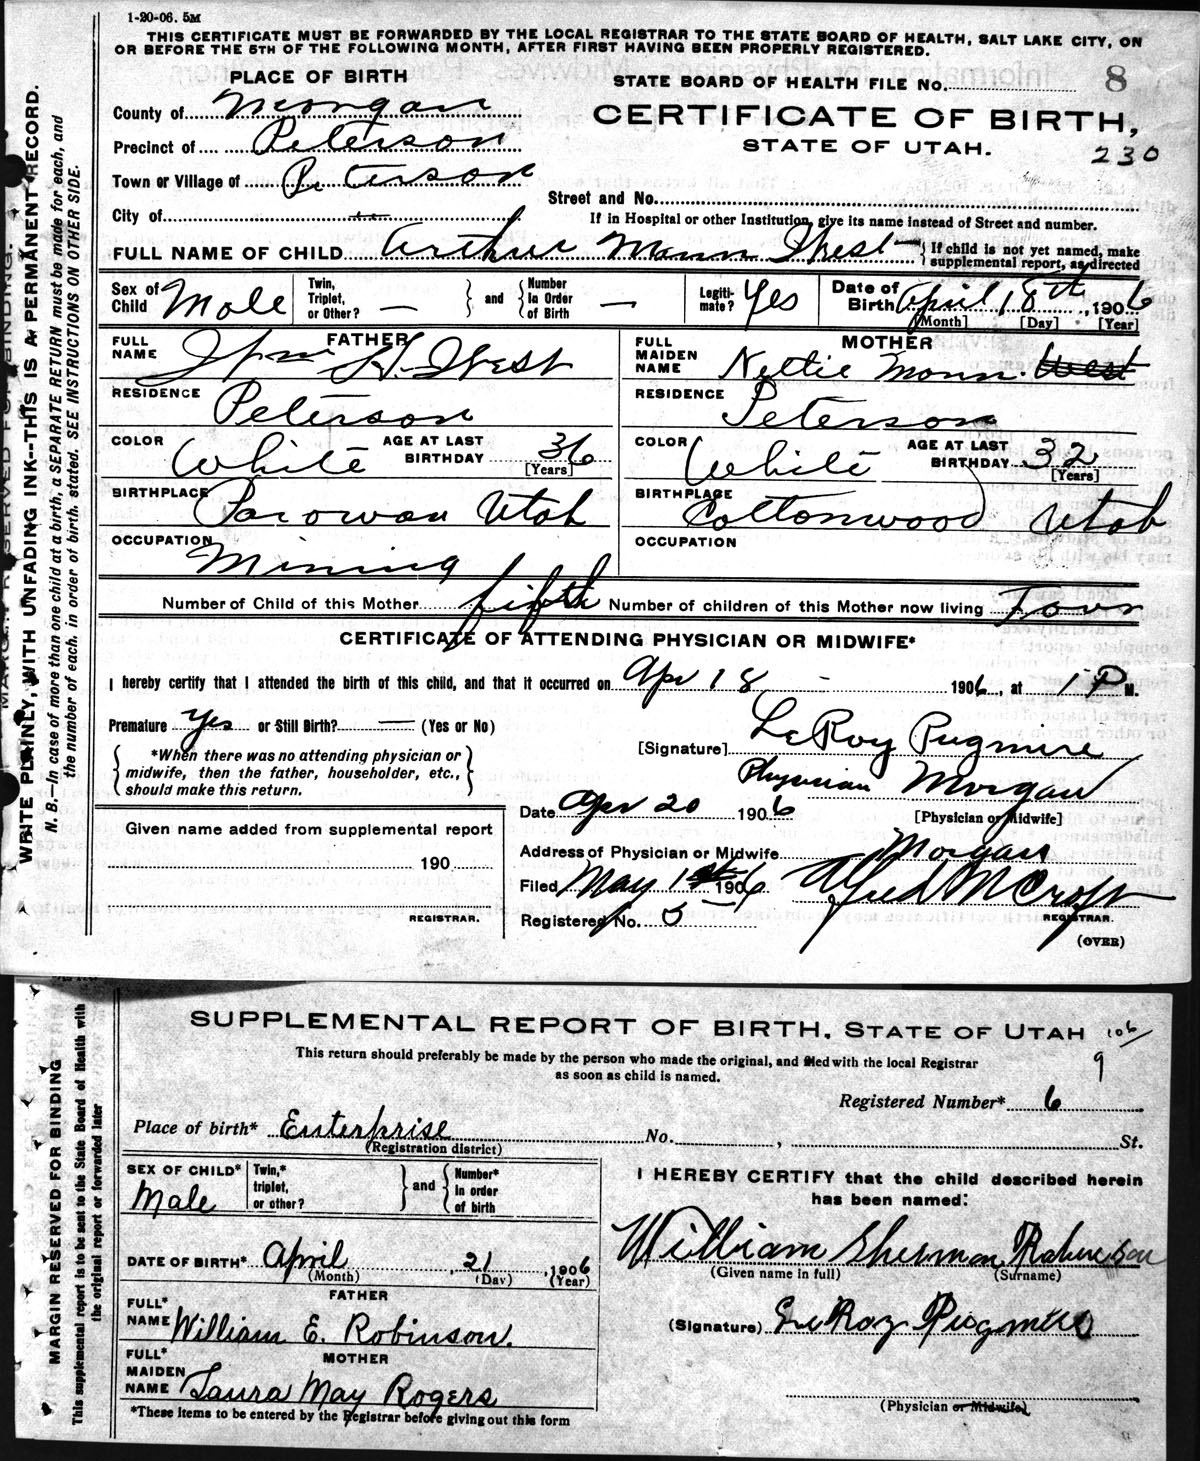 1-20-06. 5M
THIS CERTIFICATE MUST BE FORWARDED BY THE LOCAL REGISTRAR TO THE STATE BOARD OF HEALTH, SALT LAKE CITY, ON
OR BEFORE THE 5TH OF THE FOLLOWING MONTH, AFTER FIRST HAVING BEEN PROPERLY REGISTERED.
PLACE OF BIRTH
STATE BOARD OF HEALTH FILE No. 8
County of Morgan
CERTIFICATE OF BIRTH,
Precinct of Peterson
STATE OF UTAH.
230
Town or Village of Peterson
Street and No.
City of
If in Hospital or other Institution, give its name instead of Street and number.
FULL NAME OF CHILD Arthur Mann West
If child is not yet named, make
supplemental report, as directed
Sex of Child Male
Twin, Triplet, or Other? —
and
Number in Order of Birth —
Legiti- mate? Yes
Date of Birth April 18th, 1906
[Month] [Day] [Year]
FATHER
FULL NAME Wm H. West
RESIDENCE Peterson
COLOR White
AGE AT LAST BIRTHDAY 36
[Years]
BIRTHPLACE Parowan Utah
OCCUPATION Mining
MOTHER
FULL MAIDEN NAME Nettie Mann. West
RESIDENCE Peterson
COLOR White
AGE AT LAST BIRTHDAY 32
[Years]
BIRTHPLACE Cottonwood Utah
OCCUPATION
Number of Child of this Mother fifth Number of children of this Mother now living Four
CERTIFICATE OF ATTENDING PHYSICIAN OR MIDWIFE*
I hereby certify that I attended the birth of this child, and that it occurred on Apr 18 1906, at 1 P M.
Premature Yes or Still Birth? — (Yes or No)
*When there was no attending physician or
midwife, then the father, householder, etc.,
should make this return.
[Signature] LeRoy Pugmire
Physician Morgan
Date Apr 20 1906
[Physician or Midwife]
Given name added from supplemental report
190
REGISTRAR.
Address of Physician or Midwife Morgan
Filed May 1st 1906 Alfred M Croft
Registered No. 5
REGISTRAR.
(OVER)
MARGIN RESERVED FOR BINDING.
WRITE PLAINLY, WITH UNFADING INK--THIS IS A PERMANENT RECORD.
N. B.—In case of more than one child at a birth, a SEPARATE RETURN must be made for each, and
the number of each, in order of birth, stated. SEE INSTRUCTIONS ON OTHER SIDE.
SUPPLEMENTAL REPORT OF BIRTH, STATE OF UTAH
106
9
This return should preferably be made by the person who made the original, and filed with the local Registrar
as soon as child is named.
Registered Number* 6
Place of birth* Enterprise No. , St.
(Registration district)
SEX OF CHILD* Male
Twin,* triplet, or other?
and
Number* in order of birth
DATE OF BIRTH* April, 21, 1906
(Month) (Day) (Year)
FATHER
FULL* NAME William E. Robinson.
MOTHER
FULL* MAIDEN NAME Laura May Rogers
*These items to be entered by the Registrar before giving out this form
I HEREBY CERTIFY that the child described herein
has been named:
William Sherman Robinson
(Given name in full) (Surname)
(Signature) LeRoy Pugmire
(Physician or Midwife)
MARGIN RESERVED FOR BINDING
This supplemental report is to be sent to the State Board of Health with
the original report or forwarded later